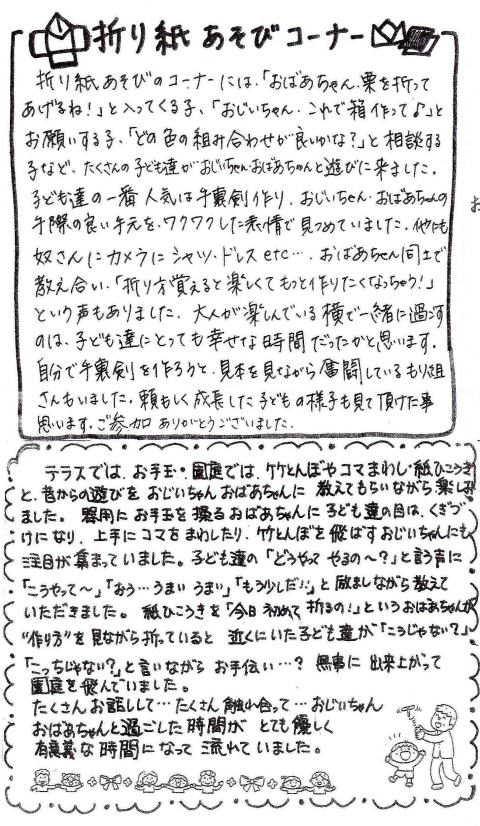 折り紙あそびコーナー
折り紙あそびのコーナーには、「おばあちゃん、栗を折って
あげるね！」と入ってくる子、「おじいちゃん、これで箱作って♪」と
お願いする子、「どの色の組み合わせが良いかな？」と相談する
子など、たくさんの子ども達がおじいちゃん・おばあちゃんと遊びに来ました。
子ども達の一番人気は手裏剣作り。おじいちゃん・おばあちゃんの
手際の良い手元を、ワクワクした表情で見つめていました。他にも
奴さんにカメラにシャツ・ドレスetc…。おばあちゃん同士で
教え合い、「折り方覚えると楽しくてもっと作りたくなっちゃう！」
という声もありました。大人が楽しんでいる横で一緒に過ごす
のは、子ども達にとっても幸せな時間だったかと思います。
自分で手裏剣を作ろうと、見本を見ながら奮闘しているもり組
さんもいました。頼もしく成長した子どもの様子も見て頂けた事
思います。ご参加ありがとうございました。
テラスでは、お手玉・園庭では、竹とんぼやコマまわし・紙ひこうき
と、昔からの遊びをおじいちゃんおばあちゃんに教えてもらいながら楽しみ
ました。器用にお手玉を操るおばあちゃんに子ども達の目は、くぎづ
けになり、上手にコマをまわしたり、竹とんぼを飛ばすおじいちゃんにも
注目が集まっていました。子ども達の「どうやってやるの〜？」と言う声に
「こうやって〜」「おぅ…うまいうまい」「もう少しだ!!」と励ましながら教えて
いただきました。紙ひこうきを「今日初めて折るの！」というおばあちゃんが
"作り方"を見ながら折っていると近くにいた子ども達が「こうじゃない？」
「こっちじゃない？」と言いながらお手伝い…？無事に出来上がって
園庭を飛んでいました。
たくさんお話しして…たくさん触れ合って…おじいちゃん
おばあちゃんと過ごした時間がとても優しく
有意義な時間になって流れていました。
お